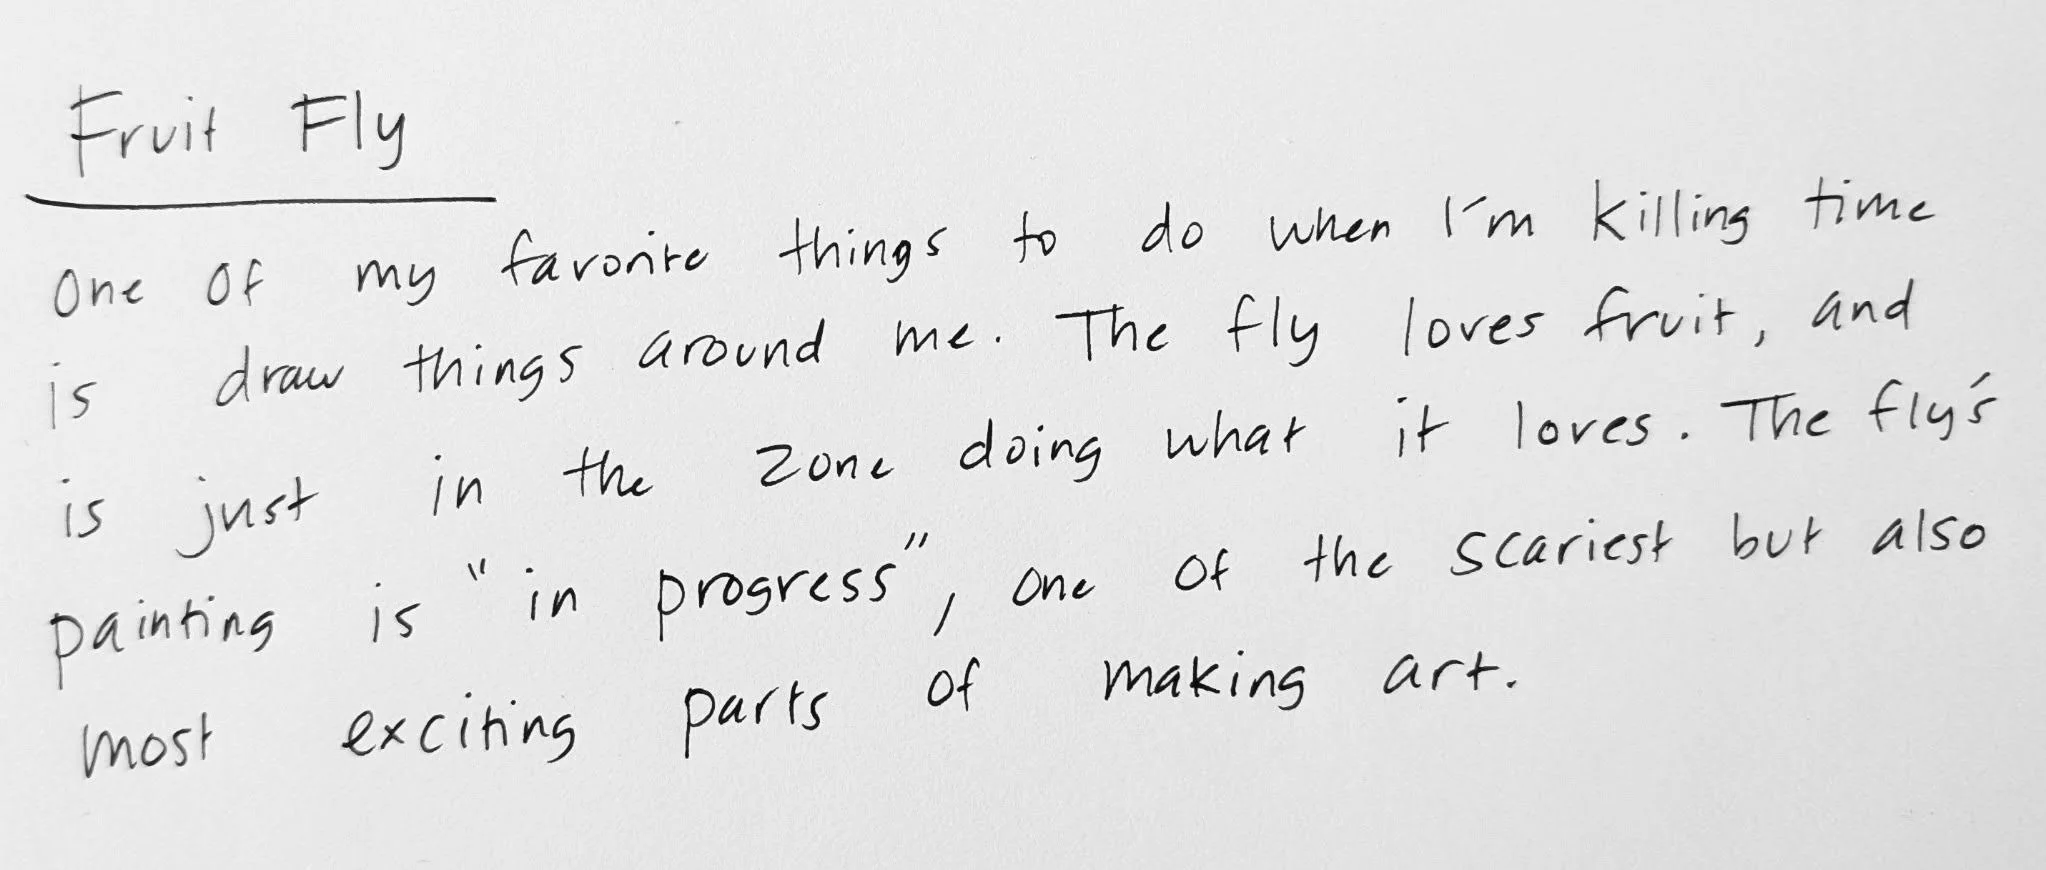 Fruit Fly
One of my favorite things to do when I'm killing time
is draw things around me. The fly loves fruit, and
is just in the zone doing what it loves. The fly's
painting is "in progress", one of the scariest but also
most exciting parts of making art.